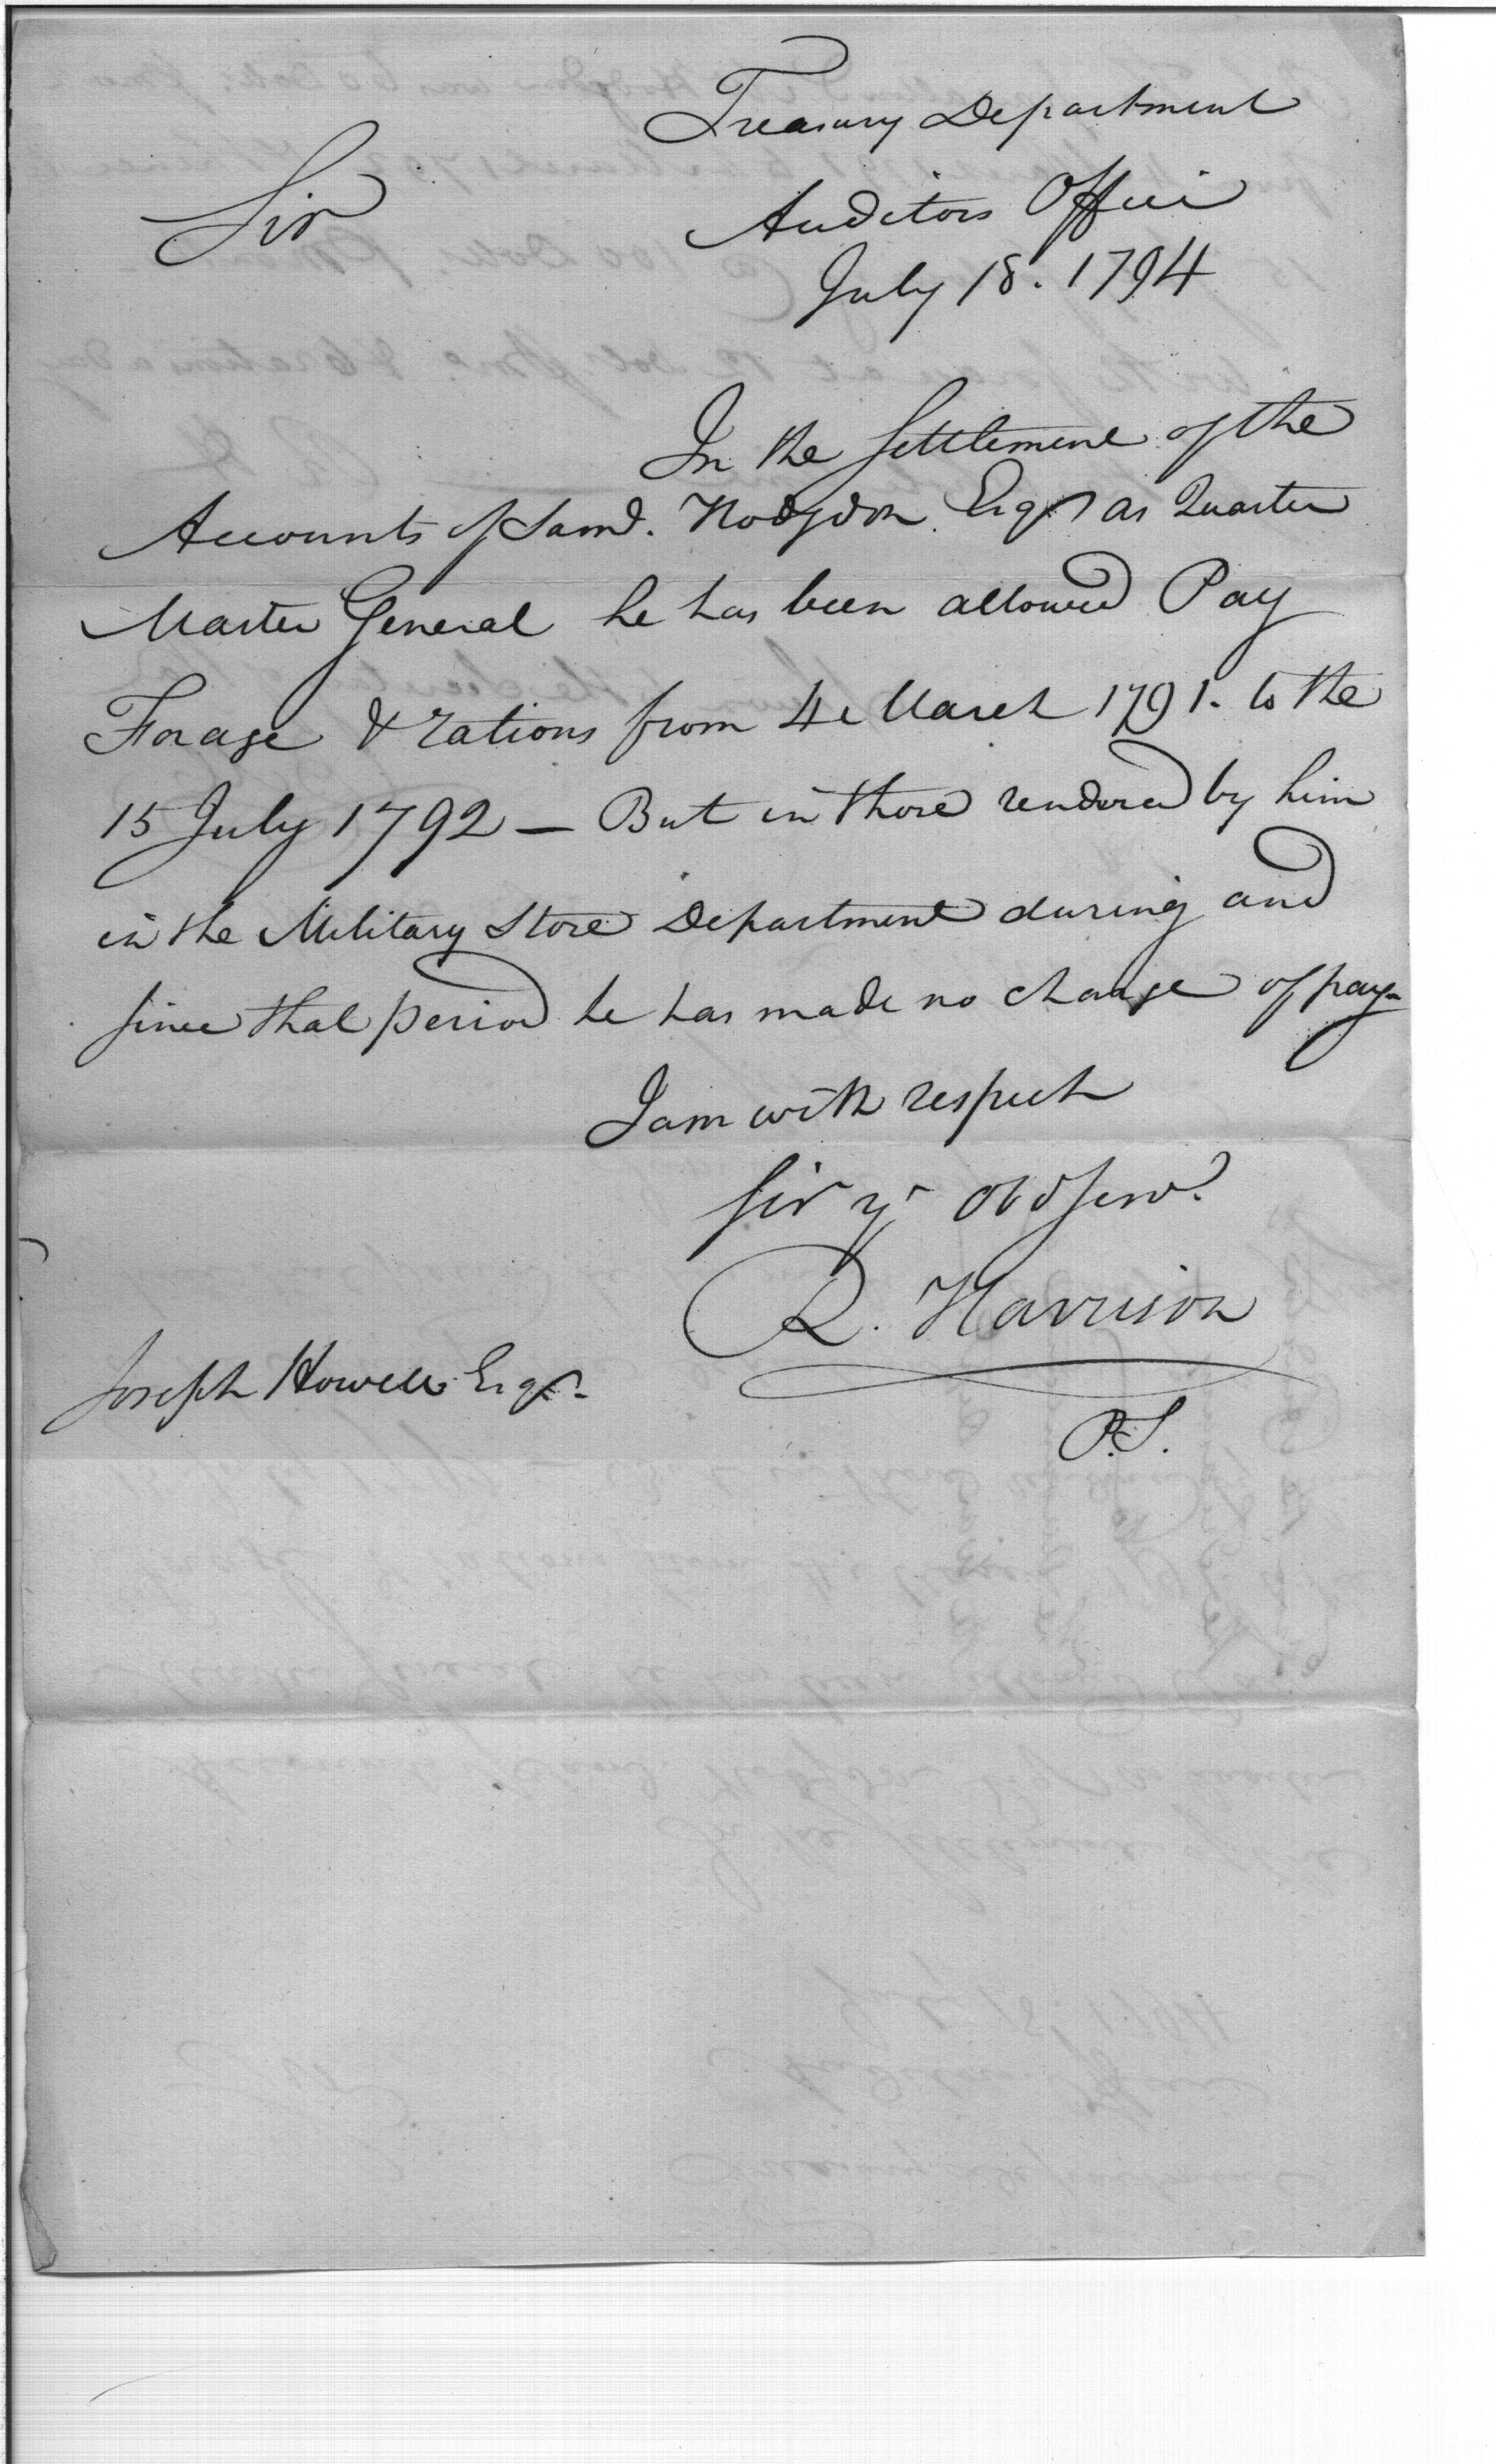 Treasury Department
Sir
Auditors Office
July 18. 1794
In the Settlement of the
Accounts of Saml. Hodgdon Esqr as Quarter
Master General he has been allowed Pay
Forage & rations from 4e March 1791. to the
15 July 1792 — But in those rendered by him
in the Military Store Department during and
since that period he has made no charge of pay-
I am with respect
Sir yr Obd Serv.
R. Harrison
Joseph Howell Esqr.
P.S.